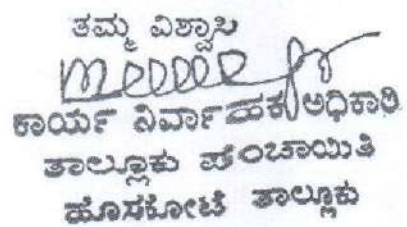 ತಮ್ಮ ವಿಶ್ವಾಸಿ
ಕಾರ್ಯ ನಿರ್ವಾಹಕ ಅಧಿಕಾರಿ
ತಾಲ್ಲೂಕು ಪಂಚಾಯಿತಿ
ಹೊಸಕೋಟೆ ತಾಲ್ಲೂಕು